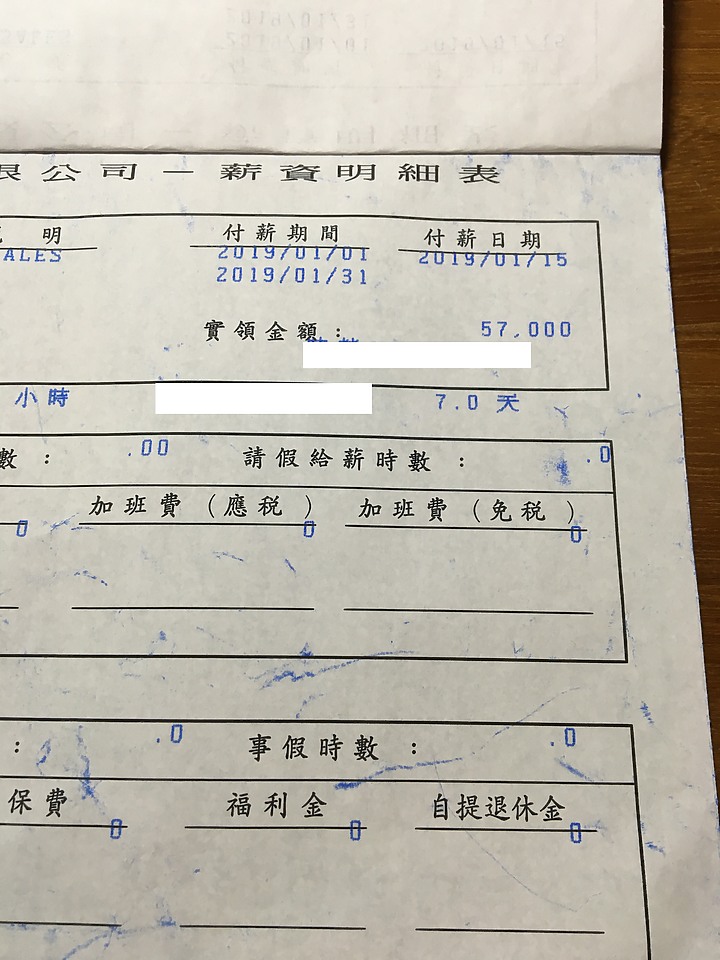 限公司－薪資明細表
明 付薪期間 付薪日期
ALES 2019/01/01 2019/01/15
2019/01/31
實領金額： 57,000
小時 7.0 天
數： .00 請假給薪時數： .0
加班費（應税） 加班費（免税）
0 0 0
： .0 事假時數： .0
保費 福利金 自提退休金
0 0 0